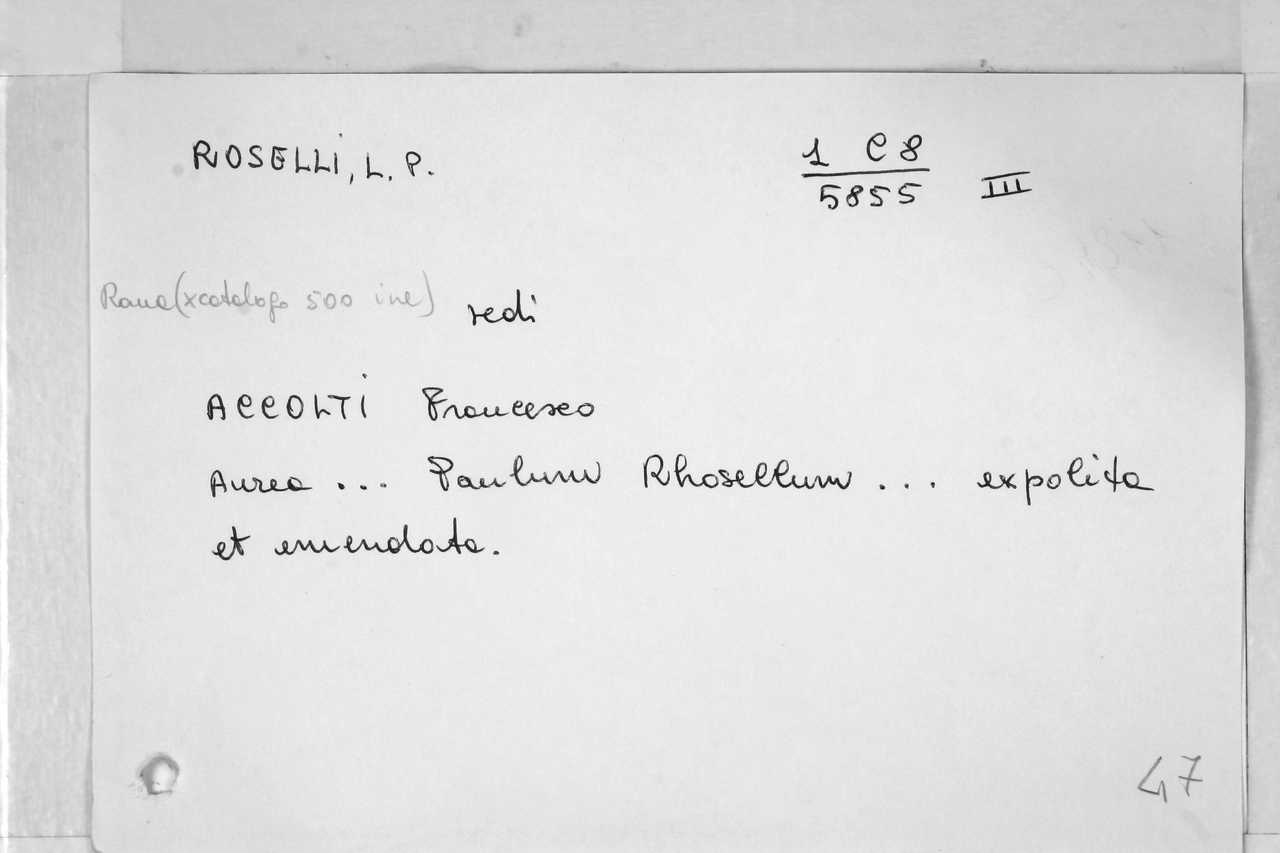 ROSELLI, L. P.
1 C 8
5855 III
(x catalogo 500 ine)
redi
ACCOLTI Francesco
Aurea ... Paulum Rhosellum ... expolita
et emendata.
47